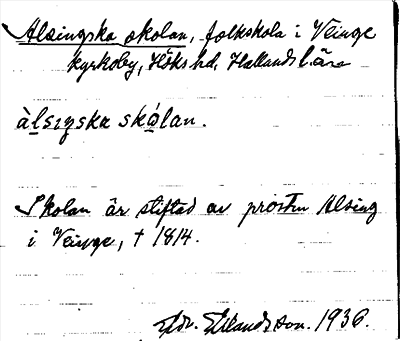 Alsingska skolan, folkskola i Veinge
kyrkoby, Höks hd, Hallands län
àlsiŋska skó̠lan.
Skolan är stiftad av prosten Alsing
i Veinge, † 1814.
Edv. Erlandsson. 1936.